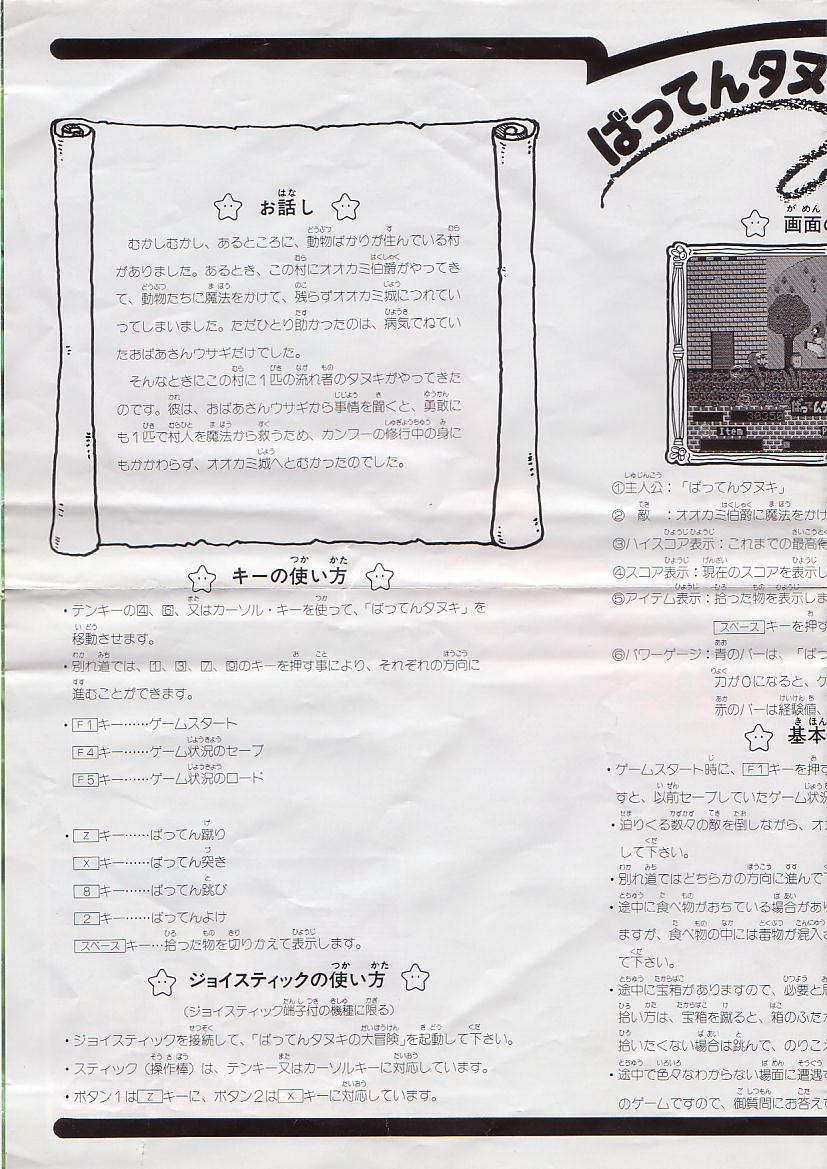 ばってんタヌ
お話し
むかしむかし、あるところに、動物ばかりが住んでいる村
がありました。あるとき、この村にオオカミ伯爵がやってき
て、動物たちに魔法をかけて、残らずオオカミ城につれてい
ってしまいました。ただひとり助かったのは、病気でねてい
たおばあさんウサギだけでした。
そんなときにこの村に1匹の流れ者のタヌキがやってきた
のです。彼は、おばあさんウサギから事情を聞くと、勇敢に
も1匹で村人を魔法から救うため、カンフーの修行中の身に
もかかわらず、オオカミ城へとむかったのでした。
キーの使い方
・テンキーの4、6、又はカーソル・キーを使って、「ばってんタヌキ」を
移動させます。
・別れ道では、1、3、7、9のキーを押す事により、それぞれの方向に
進むことができます。
・F1キー……ゲームスタート
F4キー……ゲーム状況のセーブ
F5キー……ゲーム状況のロード
・Zキー……ばってん蹴り
Xキー……ばってん突き
8キー……ばってん跳び
2キー……ばってんよけ
スペースキー…拾った物を切りかえて表示します。
ジョイスティックの使い方
(ジョイスティック端子付の機種に限る)
・ジョイスティックを接続して、「ばってんタヌキの大冒険」を起動して下さい。
・スティック(操作棒)は、テンキー又はカーソルキーに対応しています。
・ボタン1はZキーに、ボタン2はXキーに対応しています。
画面の
30350
Item
①主人公：「ばってんタヌキ」
② 敵 ：オオカミ伯爵に魔法をかけ
③ハイスコア表示：これまでの最高得
④スコア表示：現在のスコアを表示し
⑤アイテム表示：拾った物を表示しま
スペースキーを押す
⑥パワーゲージ：青のバーは、「ばっ
力が0になると、ゲ
赤のバーは経験値、
基本
・ゲームスタート時に、F1キーを押す
すと、以前セーブしていたゲーム状況
・迫りくる数々の敵を倒しながら、オオ
して下さい。
・別れ道ではどちらかの方向に進んで下
・途中に食べ物がおちている場合があり
ますが、食べ物の中には毒物が混入さ
て下さい。
・途中に宝箱がありますので、必要と思
拾い方は、宝箱を蹴ると、箱のふたが
拾いたくない場合は跳んで、のりこえ
・途中で色々なわからない場面に遭遇す
のゲームですので、御質問にお答えで